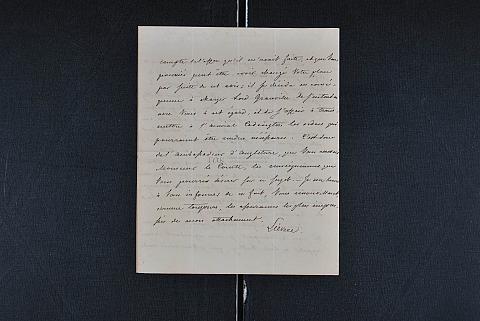 compte de l'offre qu'il en avait faite, et que Vous
pouviez peut être avoir changé Votre plan
par suite de cet avis; il se décida en consé-
quence à charger Lord Granville de s'entendre
avec Vous à cet égard, et de s'offrir à trans-
mettre à l'amiral Codrington les ordres qui
pourraient être rendus nécessaires. C'est donc
de l'ambassadeur d'Angleterre, que Vous
Monsieur le Comte, les renseignemens que
Vous pourriez désirer sur ce sujet. Je me
à Vous informer de ce fait, Vous renouvellant
comme toujours, les assurances les plus
de mon attachement.
Lieven.